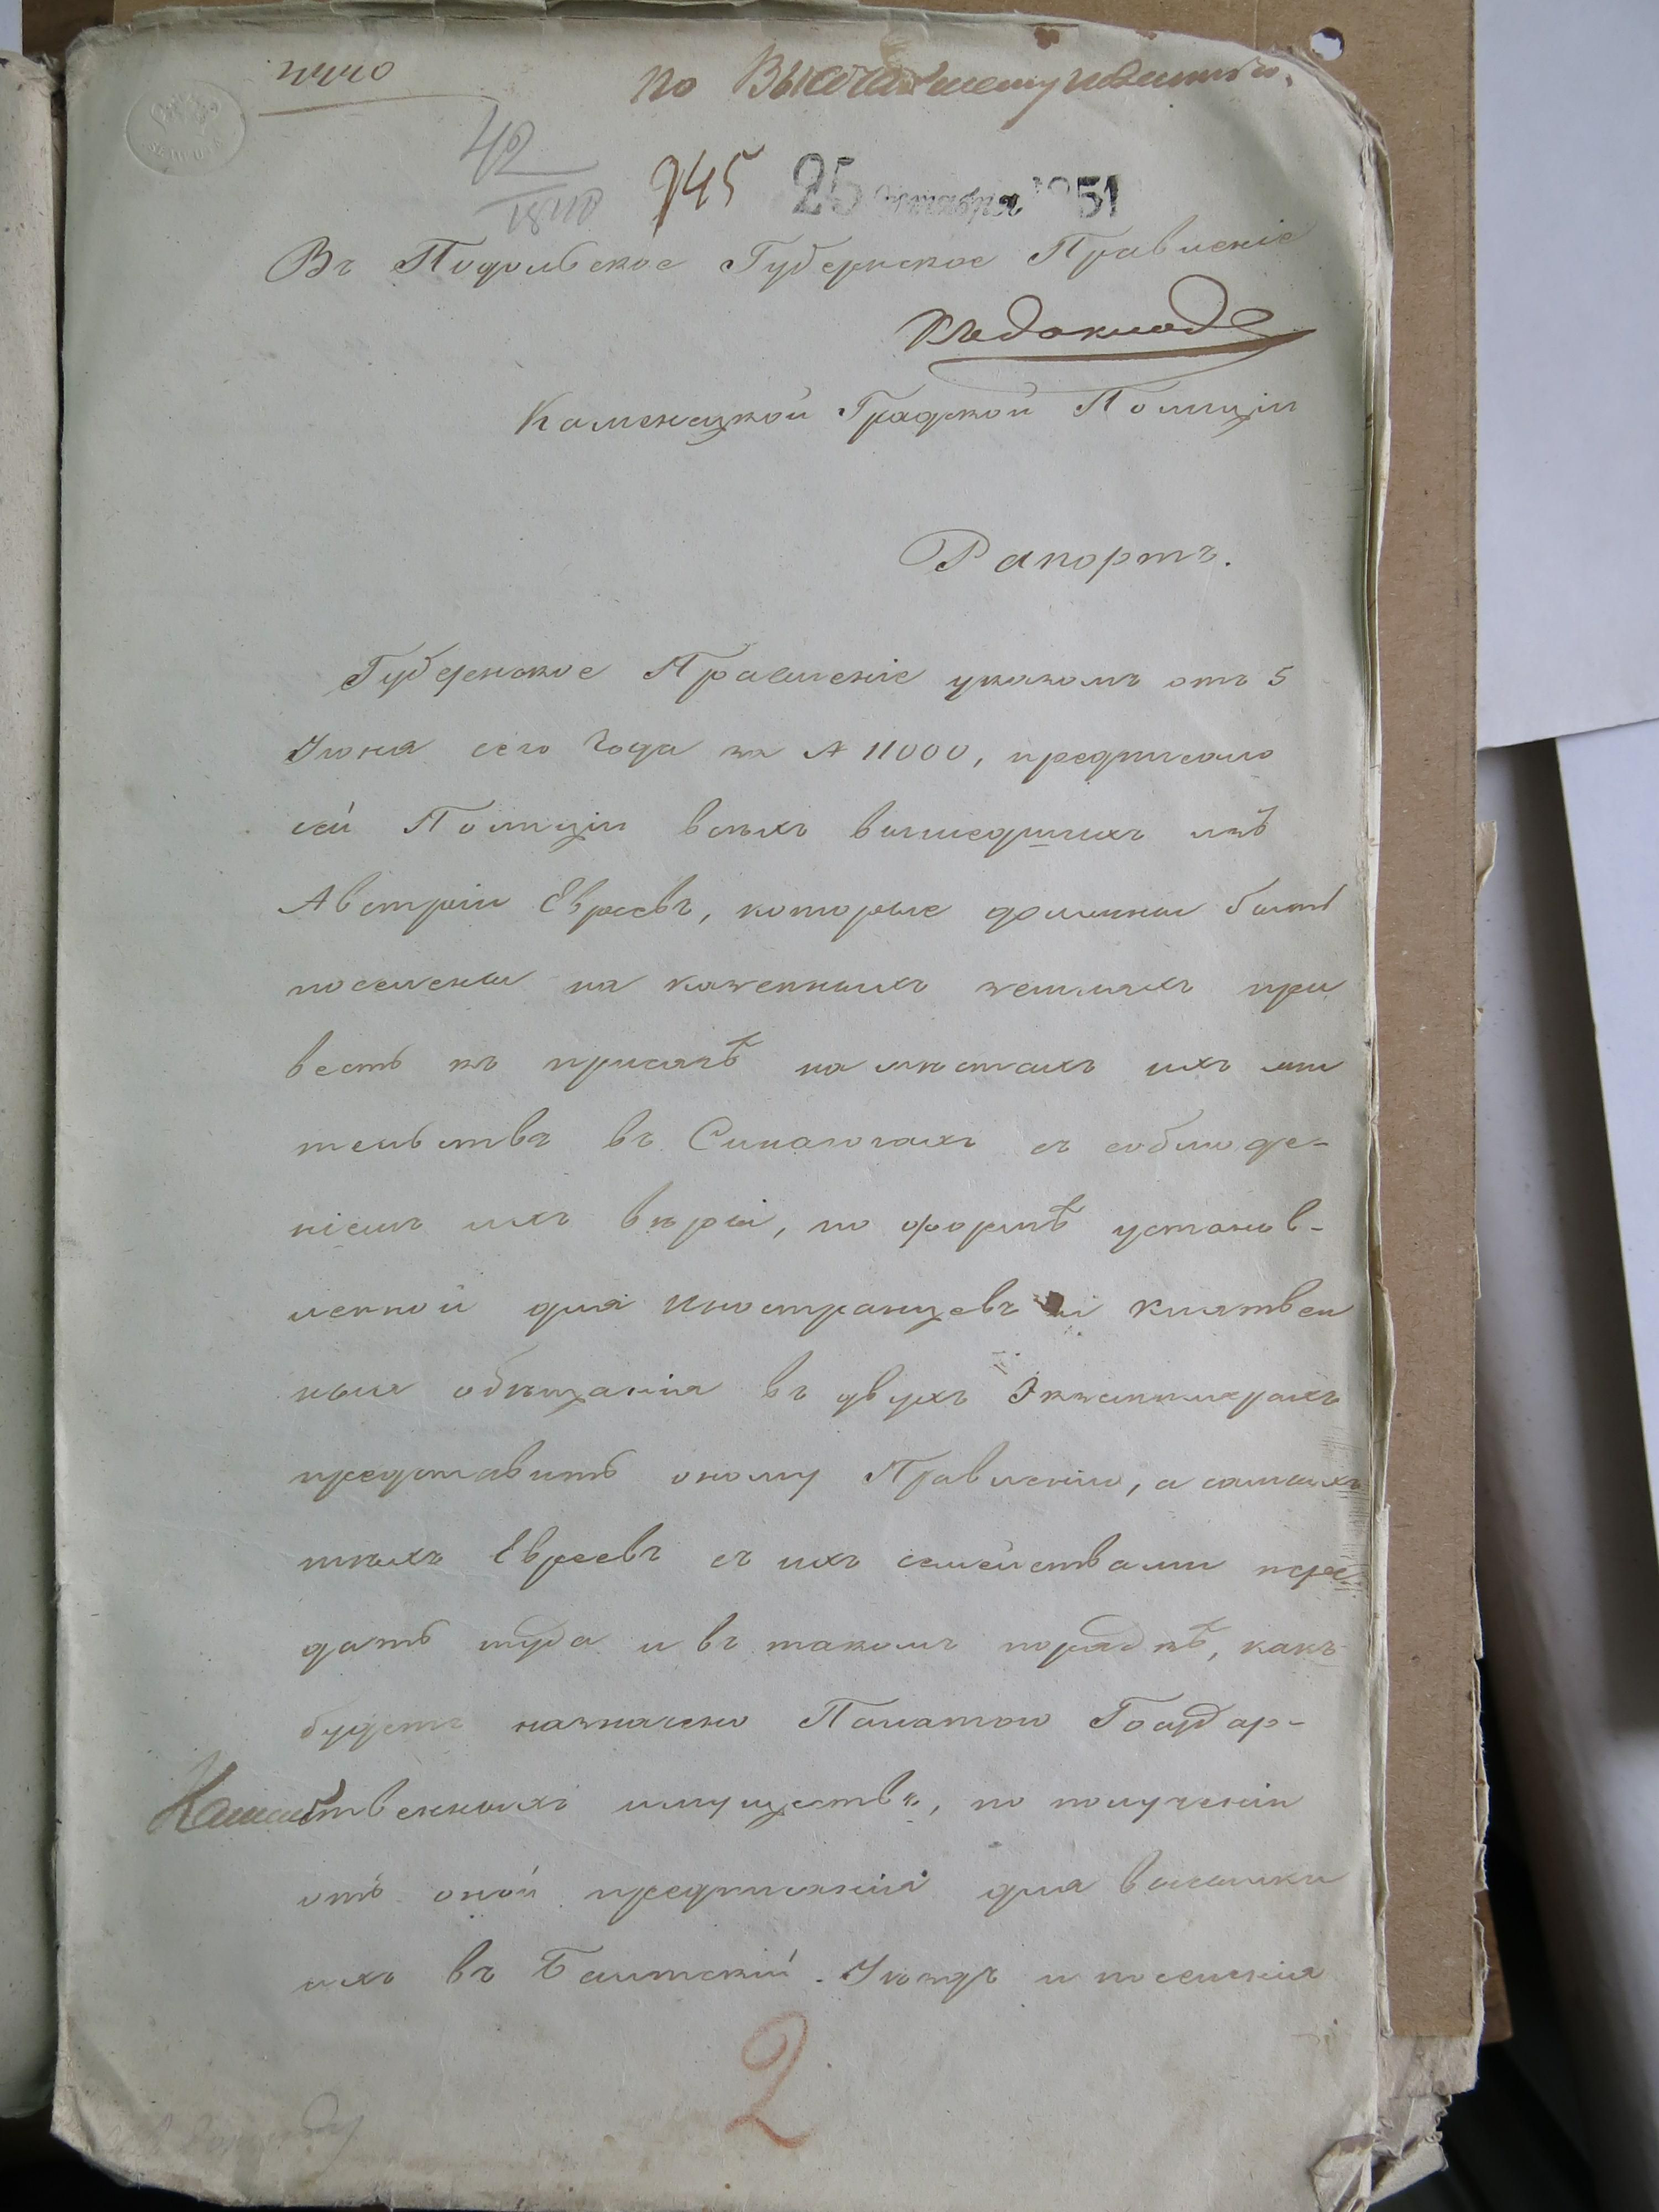 по Высочайшему повелению.
42
945 25 октября 1851
Въ Подольское Губернское Правленіе
Къ докладу
Каменецкой Градской Полиціи
Рапортъ.
Губернское Правленіе указомъ отъ 5
Іюня сего года за № 11000, предписало
сей Полиціи всѣхъ вышедшихъ изъ
Австріи Евреевъ, которые должны быть
поселены на казенныхъ земляхъ при
весть къ присягѣ на мѣстахъ ихъ жи
тельства въ Синагогахъ съ соблюде-
ніемъ ихъ вѣры, по формѣ установ-
ленной для Иностранцевъ и клятвен
ныя обѣщанія въ двухъ Экземплярахъ
представить оному Правленію, а самыхъ
тѣхъ Евреевъ съ ихъ семействами пере
дать туда и въ такомъ порядкѣ, какъ
будетъ назначено Палатою Государ-
ственныхъ имуществъ, по полученіи
отъ оной предписанія для высылки
ихъ въ Балтскій Уѣздъ и поселенія
2